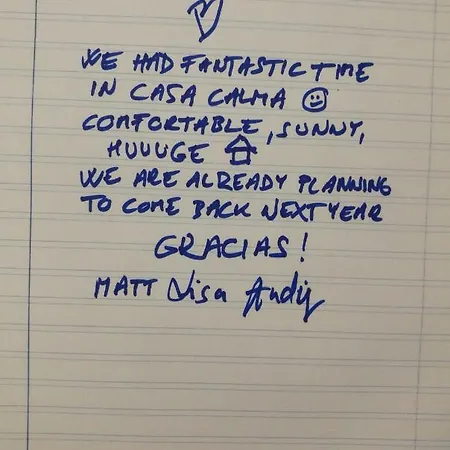 WE HAD FANTASTIC TIME
IN CASA CALMA ☺
COMFORTABLE, SUNNY,
HUUUGE
WE ARE ALREADY PLANNING
TO COME BACK NEXT YEAR
GRACIAS!
MATT Lisa Andy